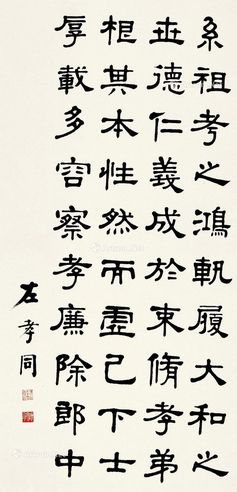 系祖考之鴻軌履大和之
在德仁義成於束脩孝弟
根其本性然而虛己下士
厚載多容察孝廉除郎中
左孝同